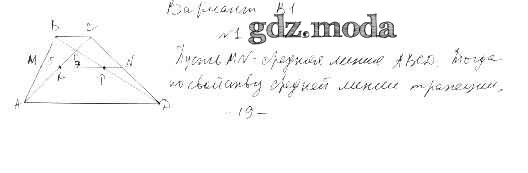 Вариант В1
№1
gdz.moda
B C
M N
K P
A D
Пусть MN - средняя линия ABCD. Тогда
по свойству средней линии трапеции,
- 19 -